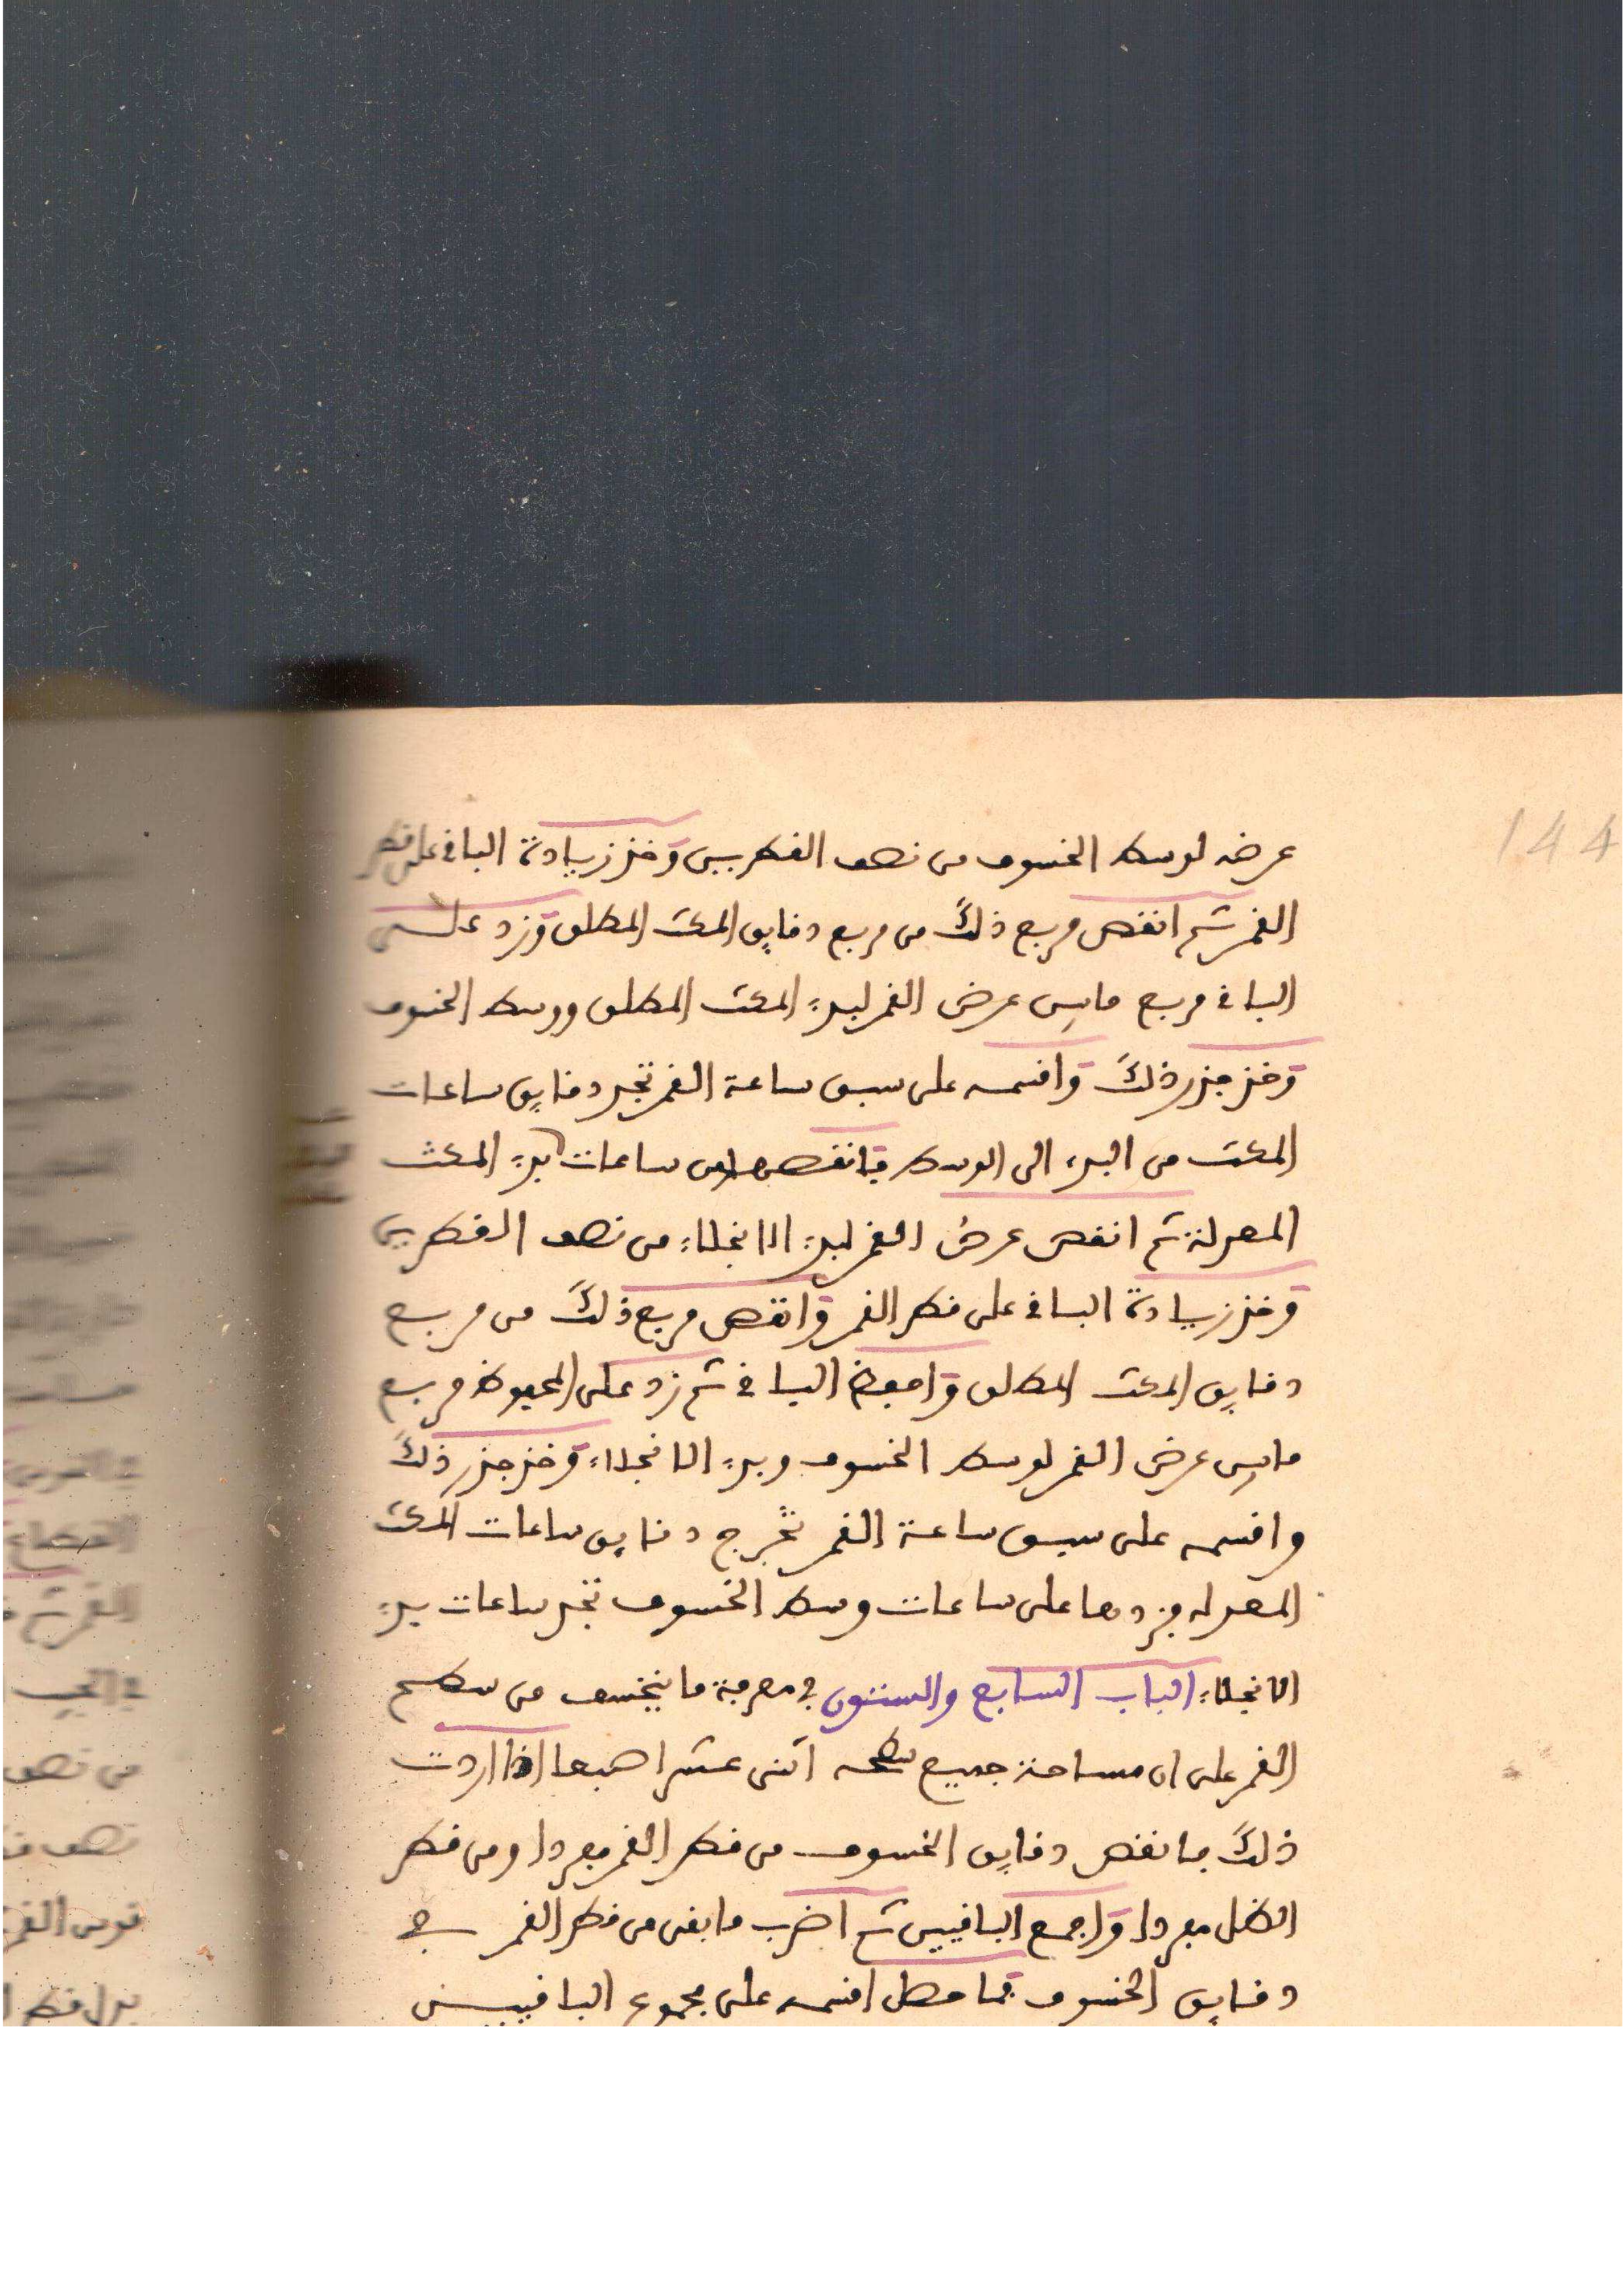 144
عرضه لوسط الخسوف من نصف القطريين وخذ زيادة الباقي على قطر
القمر ثم انقص مربع ذلك من مربع دقايق المكث المطلق وزد على
الباقي مربع مابين عرض القمر لبدء المكث المطلق ووسط الخسوف
وخذ جذر ذلك واقسمه على سبق ساعة القمر تخرج دقايق ساعات
المكث من البدء الى الوسط فانقصها من ساعات بدء المكث
المعدلة ثم انقص عرض القمر لبدء الانجلاء من نصف القطريين
وخذ زيادة الباقي على قطر القمر وانقص مربع ذلك من مربع
دقايق المكث المطلق واحفظ الباقي ثم زد على المحفوظ مربع
مابين عرض القمر لوسط الخسوف وبدء الانجلاء وخذ جذر ذلك
واقسمه على سبق ساعة القمر تخرج دقايق ساعات المكث
المعدله فزدها على ساعات وسط الخسوف تخرج ساعات بدء
الانجلاء الباب السابع والستون في معرفة ما ينخسف من سطح
القمر على ان مساحة جميع سطحه اثنى عشر اصبعا اذا اردت
ذلك فانقص دقايق الخسوف من قطر القمر مفردا ومن قطر
الظل مفردا واجمع الباقيين ثم اضرب ما بقى من قطر القمر في
دقايق الخسوف فما حصل اقسمه على مجموع الباقيين